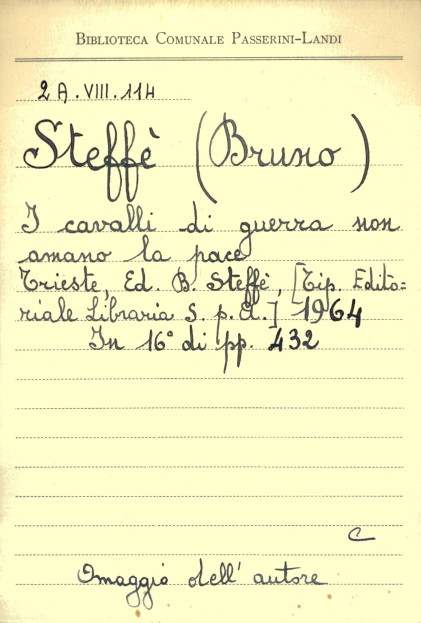 BIBLIOTECA COMUNALE PASSERINI-LANDI
2 A. VIII. 114
Steffè (Bruno)
I cavalli di guerra non
amano la pace
Trieste, Ed. B. Steffè, [Tip. Edito=
riale Libraria S. p. A.] 1964
In 16° di pp. 432
C
Omaggio dell' autore